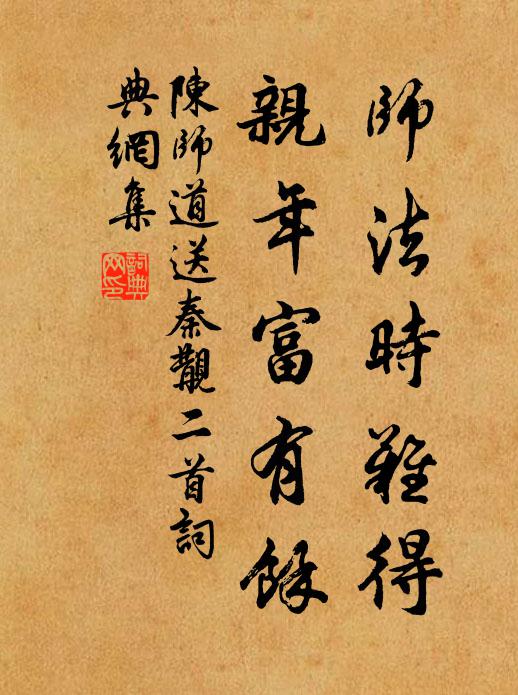 師法時難得
親年富有餘
陳師道送秦觀二首詞
典網集
詞典
网印